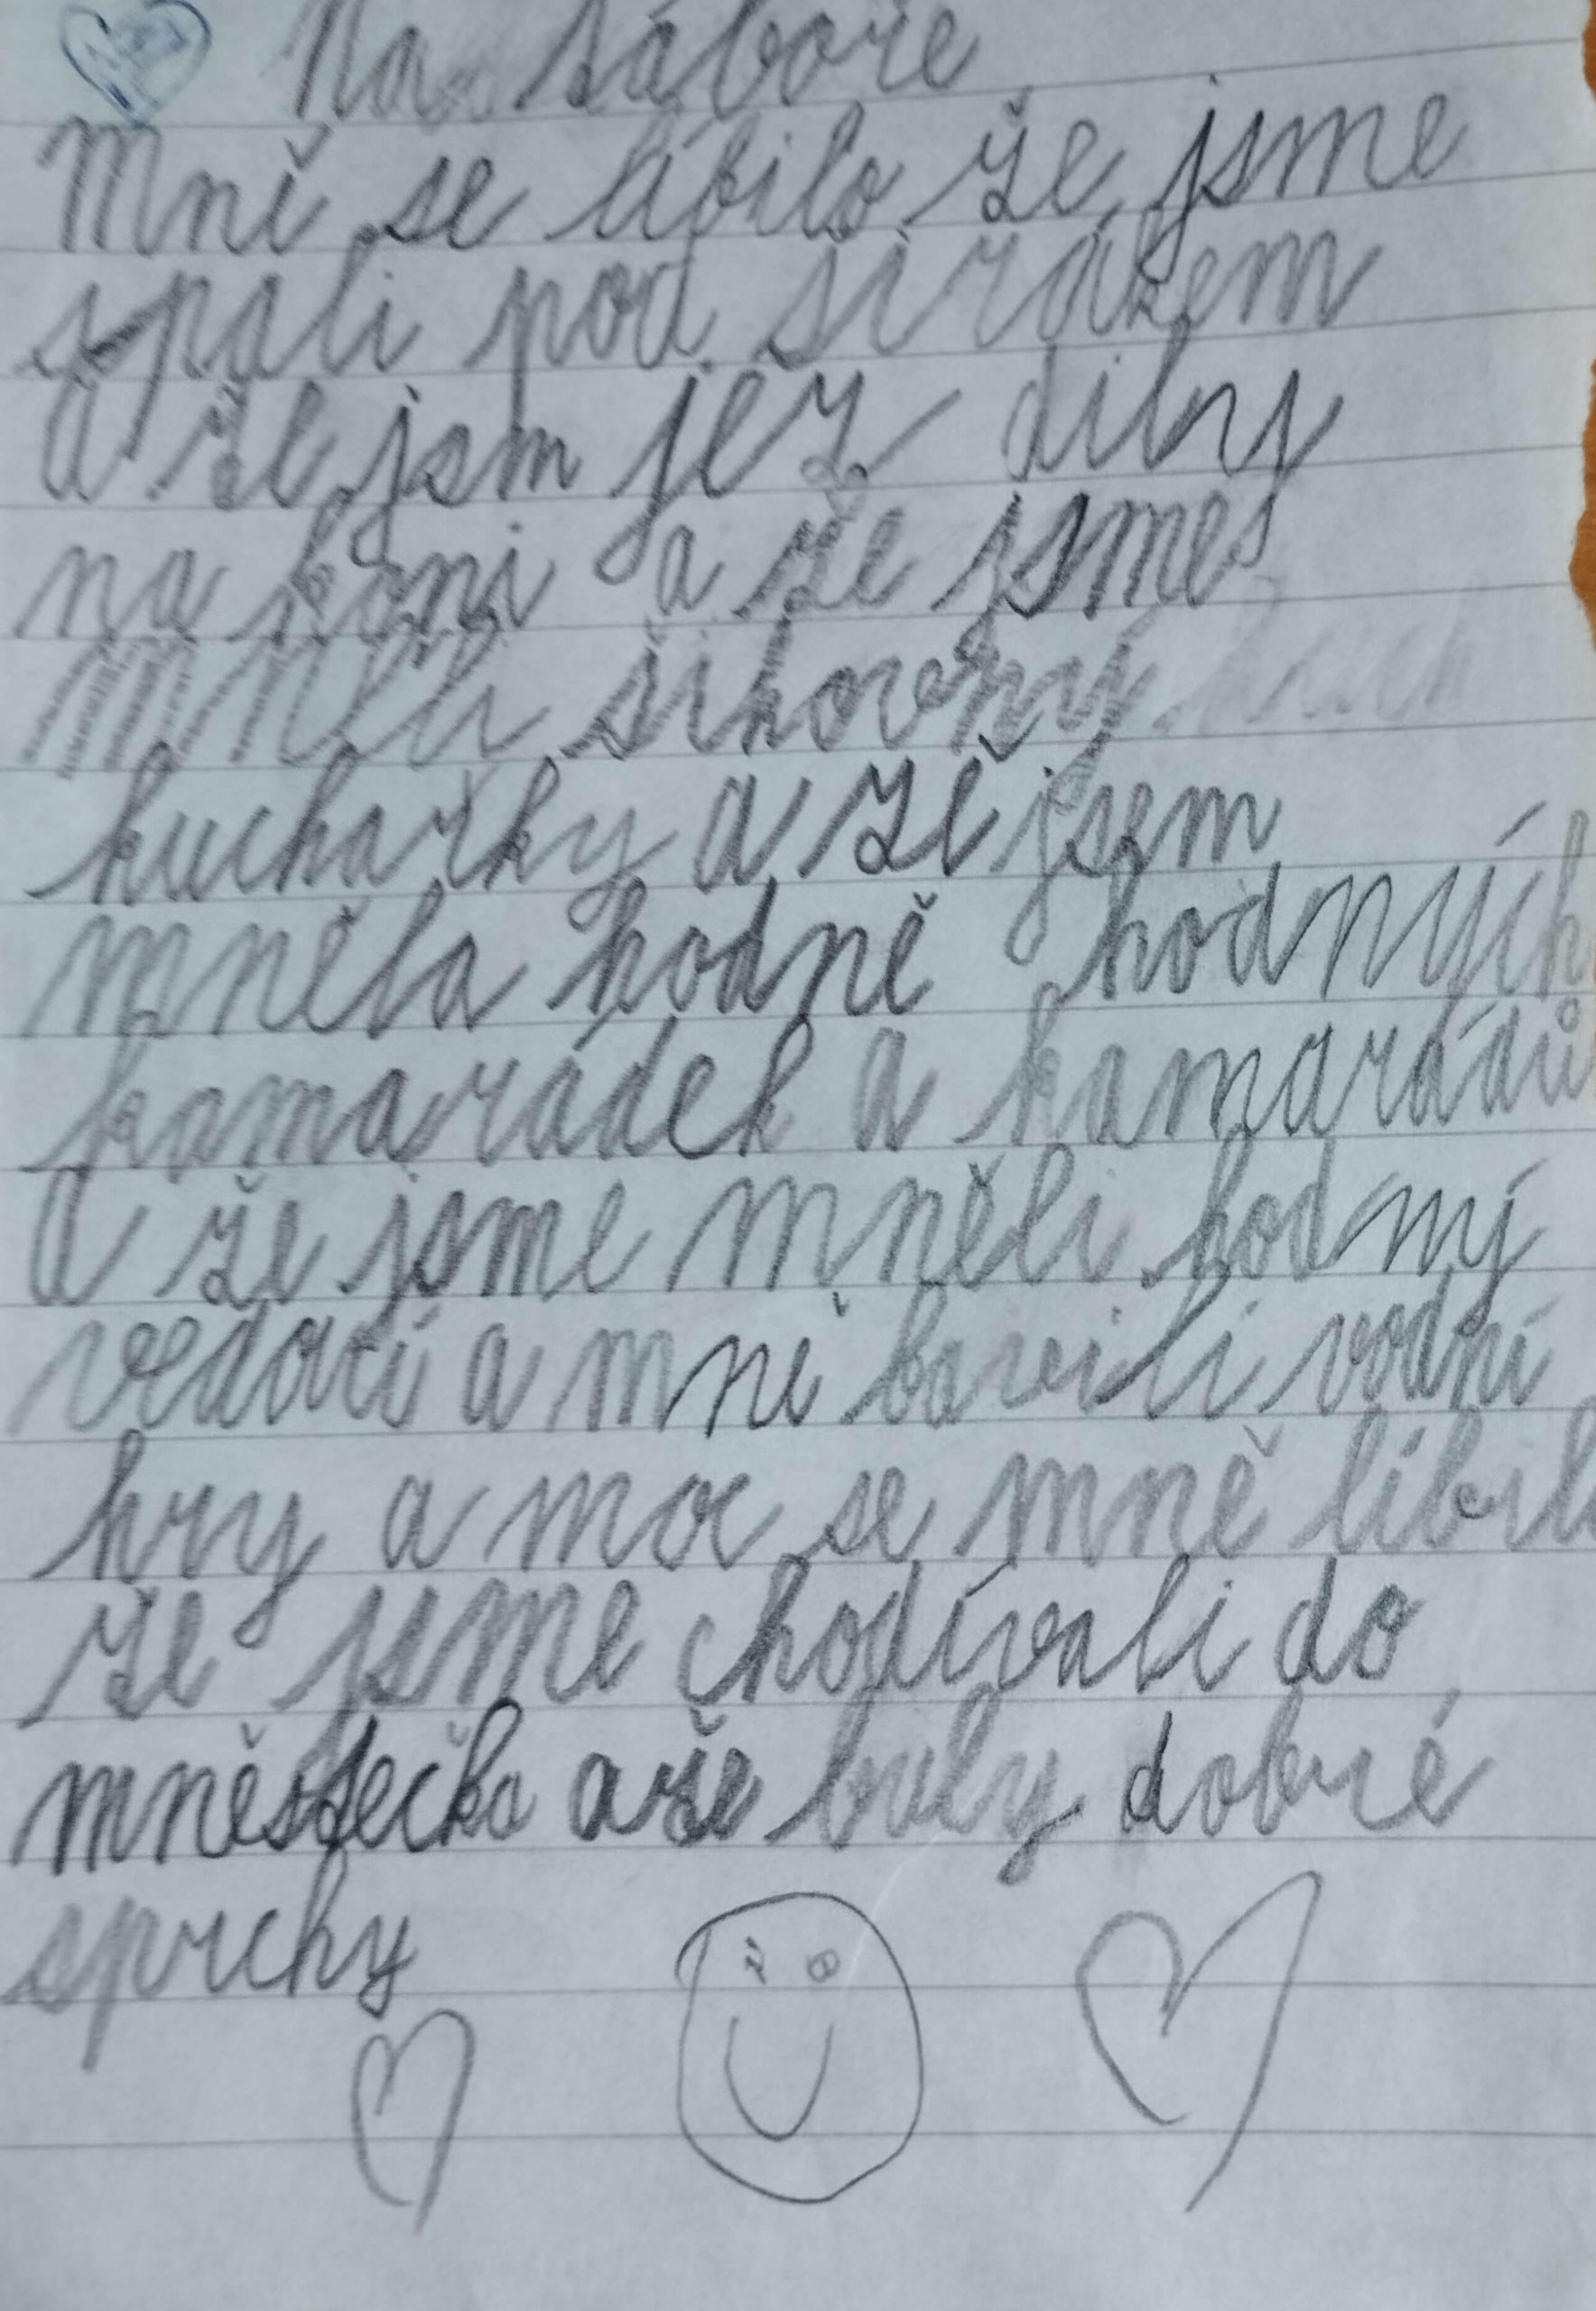 Na táboře
Mně se líbilo že jsme
spali pod širákem
a že jsm jez dily
na koni a že jsme
mněli šikovný
kuchařky a že jsem
mněla hodně hodných
kamarádek a kamarádů
a že jsme mněli hodný
vedocí a mně bavili vodní
hry a moc se mně líbilo
že jsme chodívali do
mněstečka a že buly dobré
sprchy